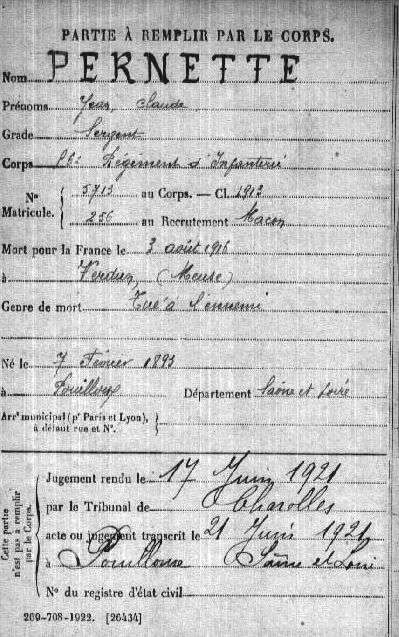 PARTIE À REMPLIR PAR LE CORPS.
Nom PERNETTE
Prénoms Jean, Claude
Grade Sergent
Corps Régiment d'Infanterie
Nº Matricule. { 5713 au Corps. — Cl. 1912
256 au Recrutement Macon
Mort pour la France le 3 août 1916
à Verdun, (Meuse)
Genre de mort Tué à l'ennemi
Né le 7 Février 1893
à Pouilloux Département Saône et Loire
Arrt municipal (pr Paris et Lyon), à défaut rue et Nº. }
Cette partie n'est pas à remplir par le Corps.
Jugement rendu le 17 Juin 1921
par le Tribunal de Charolles
acte ou jugement transcrit le 21 Juin 1921
à Pouilloux Saône et Loire
Nº du registre d'état civil
269-708-1922. [26434]